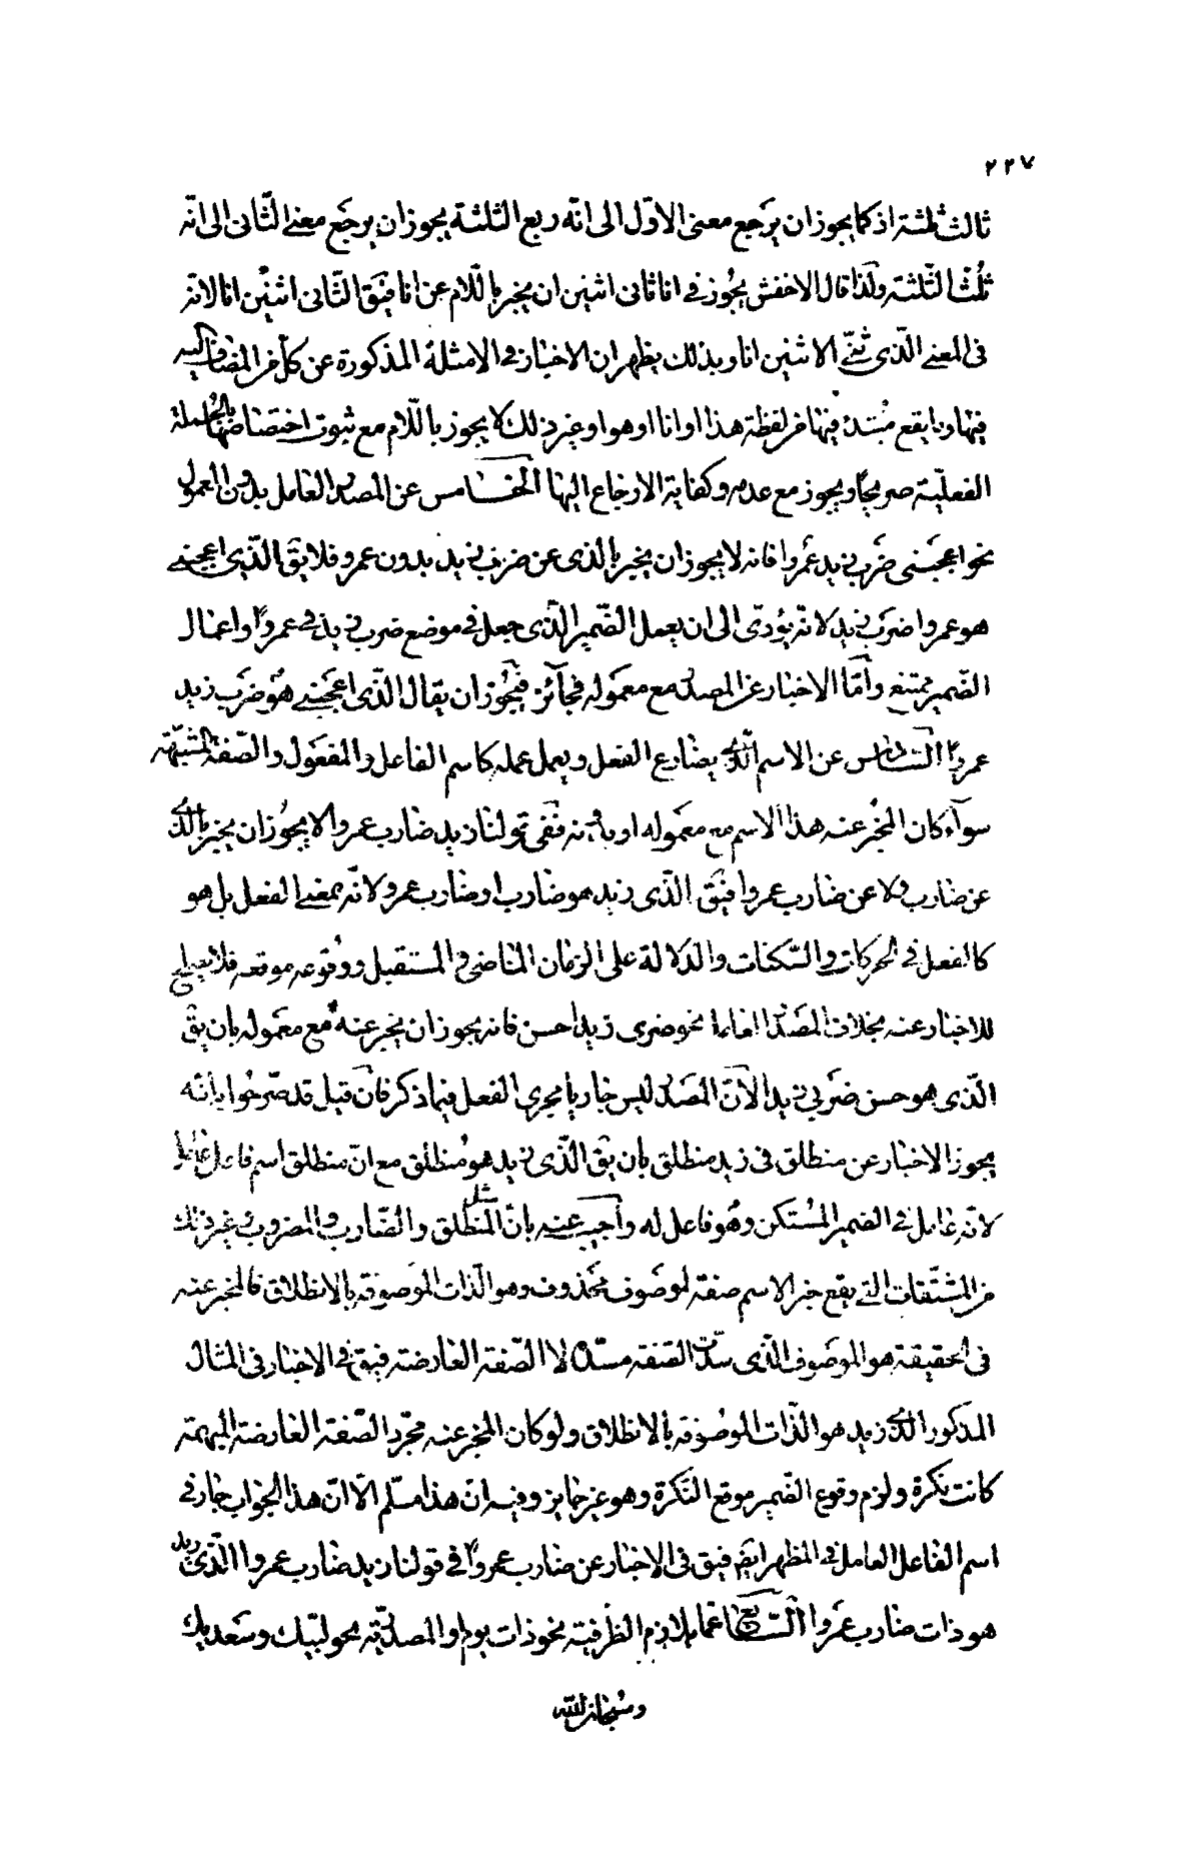 ٢٢٧
ثالث ثلثة اذ كما يجوز ان يرجع معنى الاوّل الى انّه ربع الثلثة يجوز ان يرجع معنے الثّانى الى انّه
ثُلُث الثّلثة ولذا قال الاخفش يجُوز فى انا ثانى اثنين ان يخبر باللّام عن انا فيَق الثّانى اثنيْن انا لانه
فى المعنے الّذى ثنّے الاثنين انا وبذلك يظهر ان الاخبار فى الامثلة المذكورة عن كلّ من المضاف اليه
فيها وما يقع مبتدئ فيها من لفظة هذا او انا او هو او غير ذلك لا يجوز باللّام مع ثبوت اختصاصها بالجملة
الفعليّة صريحًا ويجوز مع عدمه وكفاية الارجاع اليها الخامس عن المصدر العامل بدون المعمول
نحو اعجبَنى ضرَب زيد عمْروا فانه لا يجوز ان يخبر بالذى عن ضرب زيد بدون عمرو فلا يق الّذى اعجبنے
هو عمروا ضرَب زيد لانّه يؤدّى الى ان يعمل الضّمير الّذى جعل فى موضع ضرب زيد فى عمروًا واعمال
الضّمير ممتنع وامّا الاخبار عن المصدر مع معموله فجآئز فيجُوز ان يقال الّذى اعجبنے هوَ ضرَب زيد
عمروًا السّادس عن الاسم الّذى يضارع الفعل ويعمل عمله كاسم الفاعل والمفعَول والصّفة المشبّهة
سوآء كان المخبر عنه هذا الاسم مع معموله او بدونه ففى قولنا زيد ضارب عمروا لا يجوز ان يخبر بالّذى
عن ضارب ولا عن ضارب عمروا فيَق الّذى زيد هو ضارب او ضارب عمرو لانّه بمعنے الفعل بل هو
كالفعل فى الحركات والسّكنات والدّلالة على الزمان الماضى والمستقبل ووقوعه موقعه فلا يصلح
للاخبار عنه بخلاف المصدر العامل نحو ضربى زيدا حسن فانه يجوز ان يخبر عنه مع معموله بان يقَ
الّذى هو حسن ضربى زيدا لانّ المصدر ليس جاريا مجرى الفعل فيما ذكر فان قيل قد صرّحوا بانّه
يجوز الاخبار عن منطلق فى زيد منطلق بان يقَ الّذى زيد هو منطلق مع انّ منطلق اسم فاعل عامل
لانّه عامل فى الضمير المستكن وهُو فاعل له واجيب عنه بانّ مثل المنطلق والضّارب والمضروب وغير ذلك
من المشتّقات الّتے يقع خبر الاسم صفة لموصُوف محذوف وهو الّذات الموصوفة بالانطلاق فالمخبر عنه
فى الحقيقة هو الموصَوف الّذى سدّت الصّفة مسدّه لا الصّفة العارضة فيق فى الاخبار فى المثال
المذكور الّذى زيد هو الذّات الموصُوفة بالانطلاق ولو كان المخبر عنه مجّرد الصّفة العارضة المبهمة
كانت نكرة ولزم وقوع الضّمير موقع النّكرة وهو غير جايز وفيه ان هذا مسلّم الّا انّ هذا الجواب جار فى
اسم الفاعل العامل فى المظهر ايضَ فيق فى الاخبار عن ضارب عمروًا فى قولنا زيد ضارب عمروا الّذى زيد
هو ذات ضارب عمَروا السّابع عمّا يلازم الظّرفية نحو ذات يوم او المصدريّة نحو لبّيك وسَعديك
وسُبحان اللّٰه